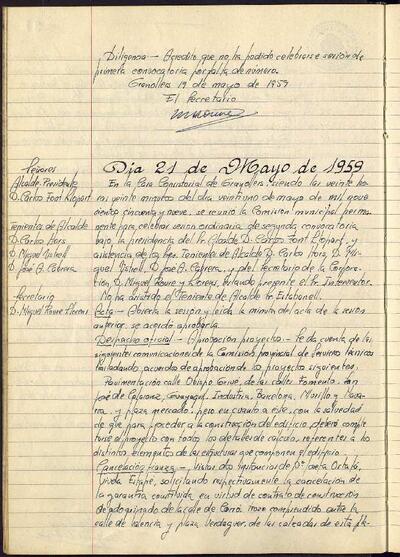 Diligencia - Acredito que no ha podido celebrarse sesión de
primera convocatoria por falta de número.
Granollers 19 de mayo de 1959
El Secretario
Día 21 de Mayo de 1959
Señores
Alcalde-Presidente
D. Carlos Font Llopart
Tenientes de Alcalde
D. Carlos
D. Miguel
D. José A. Cabrera
Secretario
D. Miguel Roure
En la Casa Consistorial de Granollers, siendo las veinte ho-
ras veinte minutos del día veintiuno de mayo de mil nove-
cientos cincuenta y nueve, se reunió la Comisión municipal perma-
nente para celebrar sesión ordinaria de segunda convocatoria
bajo la presidencia del Sr. Alcalde D. Carlos Font Llopart, y
asistencia de los Sres. Tenientes de Alcalde D. Carlos D. Mi-
guel D. José A. Cabrera, y del Secretario de la Corpora-
ción, D. Miguel Roure y estando presente el Sr. Interventor.
No ha asistido el Teniente de Alcalde Sr. Estabanell.
Acta - Abierta la sesión y leída la minuta del acta de la sesión
anterior, se acordó aprobarla.
Despacho oficial - Aprobación proyectos - Se da cuenta de las
siguientes comunicaciones de la Comisión provincial de Servicios Técnicos
trasladando acuerdos de aprobación de los proyectos siguientes.
Pavimentación calle Obispo Grivé, de las calles Fomento, San
José de Calasanz, Guayaquil, Industria, Barcelona, Murillo y Nava-
rra, y plaza mercado, pero en cuanto a este, con la salvedad
de que para proceder a la construcción del edificio, deberá comple-
tarse el proyecto con todos los detalles de cálculo, referentes a los
distintos elementos de las estructuras que componen el edificio.
Cancelación fianza - Vistas dos instancias de Dª Josefa
Viuda solicitando respectivamente la cancelación de
la garantía constituida en virtud de contrato de construcción
de adoquinado de la calle de Corró, trozo comprendido entre la
calle de Valencia y plaza Verdaguer, de las calzadas de esta